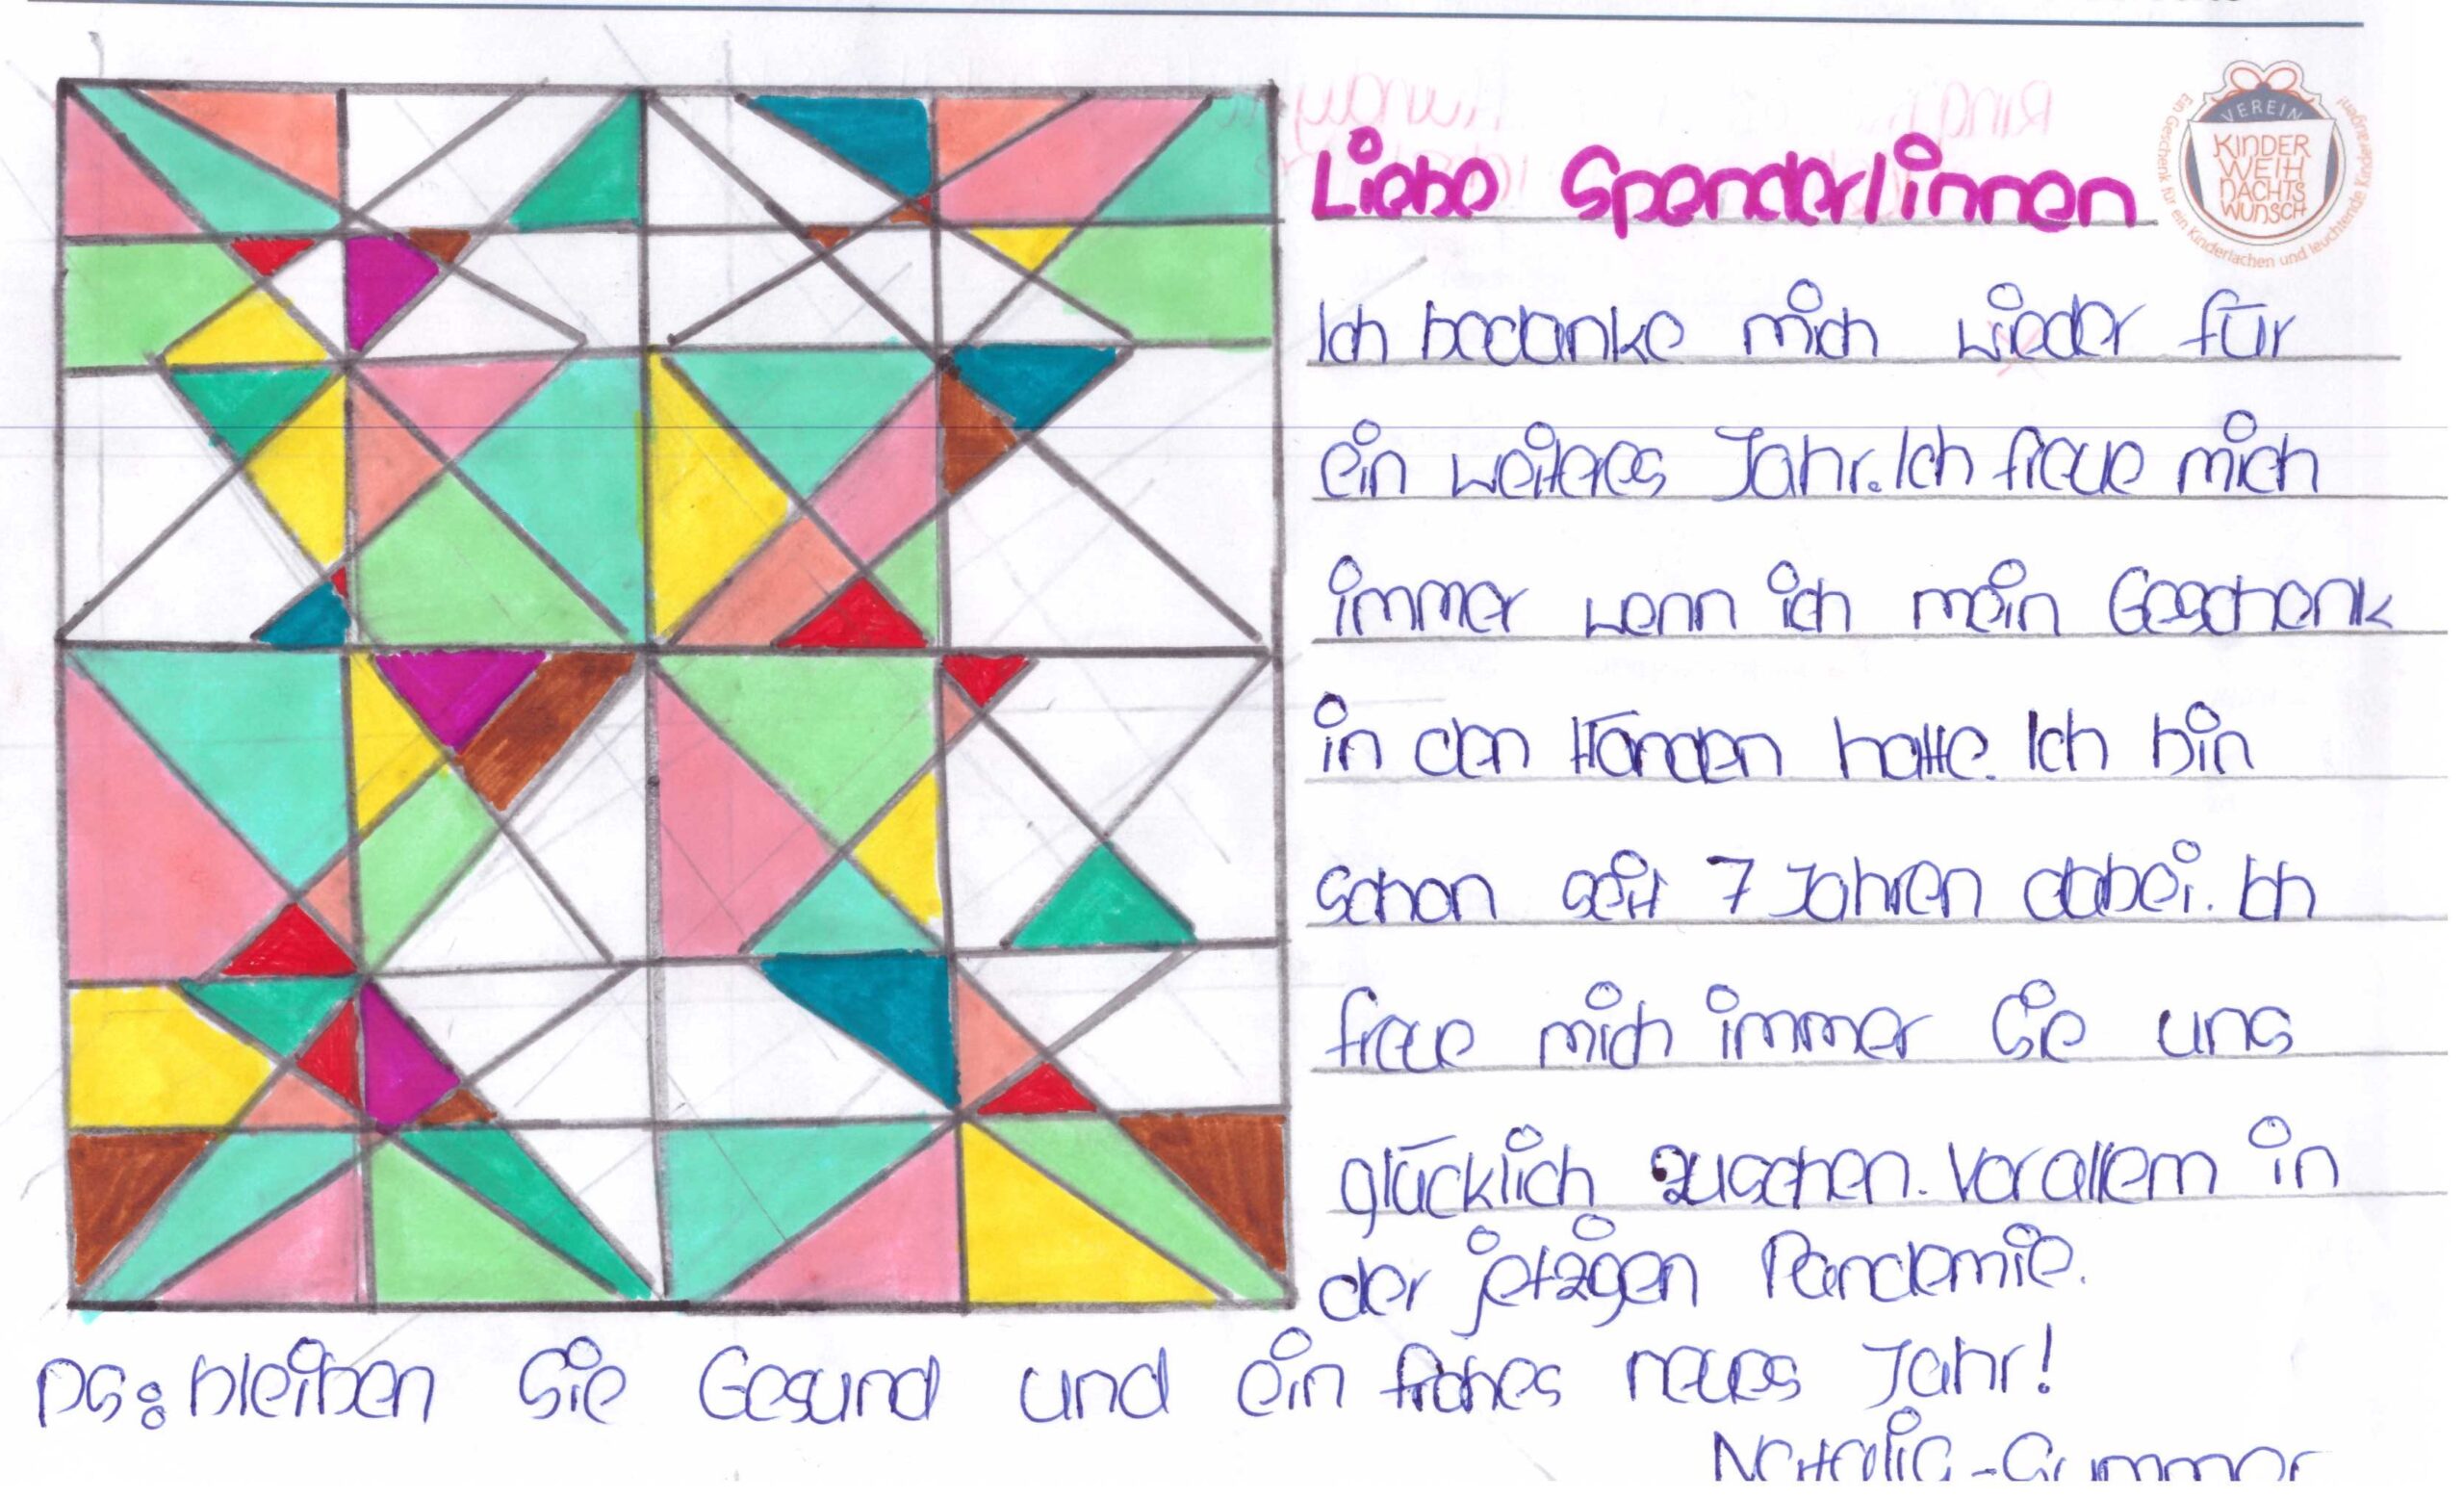 Liebe Spender/innen
VEREIN
KINDER
WEIH
NACHTS
WUNSCH
Ein Geschenk für ein Kinderlachen und leuchtende Kinderaugen!
Ich bedanke mich wieder für
ein weiteres Jahr. Ich freue mich
immer wenn ich mein Geschenk
in den Händen halte. Ich bin
schon seit 7 Jahren dabei. Ich
freue mich immer Sie uns
glücklich zusehen. Vor allem in
der jetzigen Pandemie.
PS: bleiben Sie Gesund und ein frohes neues Jahr!